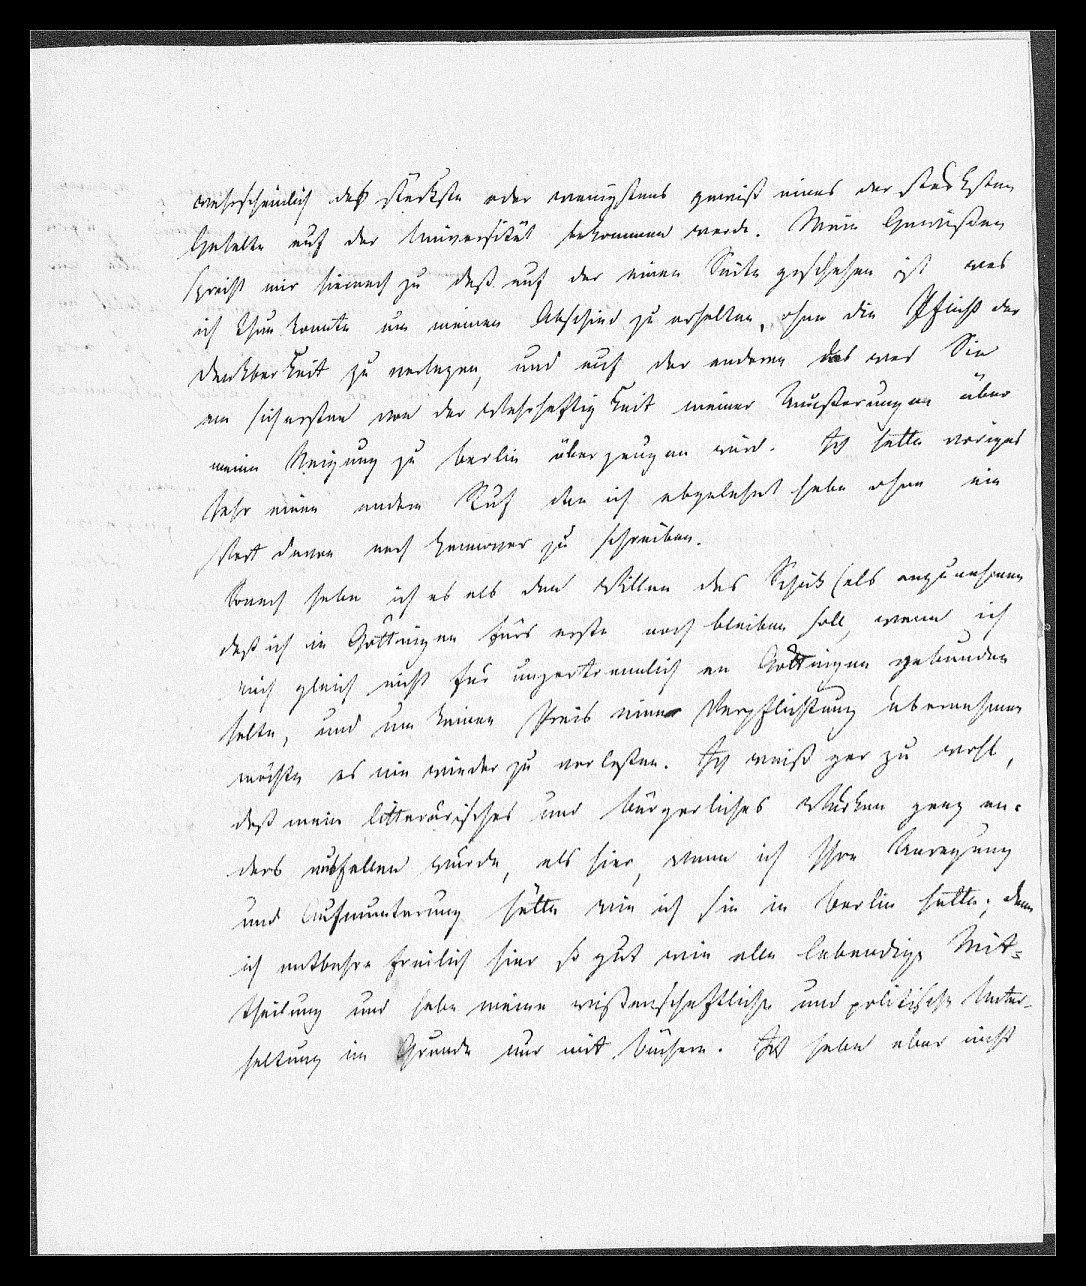 wahrscheinlich das stärkste oder wenigstens gewiß eines der stärksten
Gehalte auf der Universität bekommen werde. Mein Gewißen
spricht mir hiernach zu daß auf der einen Seite geschehen ist was
ich thun konnte um meinen Abschied zu erhalten, ohne die Pflicht der
Dankbarkeit zu verletzen, und auf der anderen das was Sie
am sichersten von der Wahrhaftigkeit meiner Aeußerungen über
meine Neigung zu Berlin überzeugen wird. Ich hatte voriges
Jahr einen andern Ruf den ich abgelehnt habe ohne ein
Wort davon nach Hannover zu schreiben.
Sonach habe ich es als den Willen des Schicksals anzunehmen
daß ich in Göttingen fürs erste noch bleiben soll, wenn ich
mich gleich nicht für unzertrennlich an Göttingen gebunden
halte, und um keinen Preis eine Verpflichtung übernehmen
möchte es nie wieder zu verlaßen. Ich weiß gar zu wohl,
daß mein litterärisches und bürgerliches Würken ganz an-
ders ausfallen würde, als hier, wenn ich Ihre Anregung
und Aufmunterung hätte wie ich sie in Berlin hatte; denn
ich entbehre freilich hier so gut wie alle lebendige Mit-
theilung und habe meine wißenschaftliche und politische Unter-
haltung im Grunde nur mit Büchern. Ich habe aber nicht